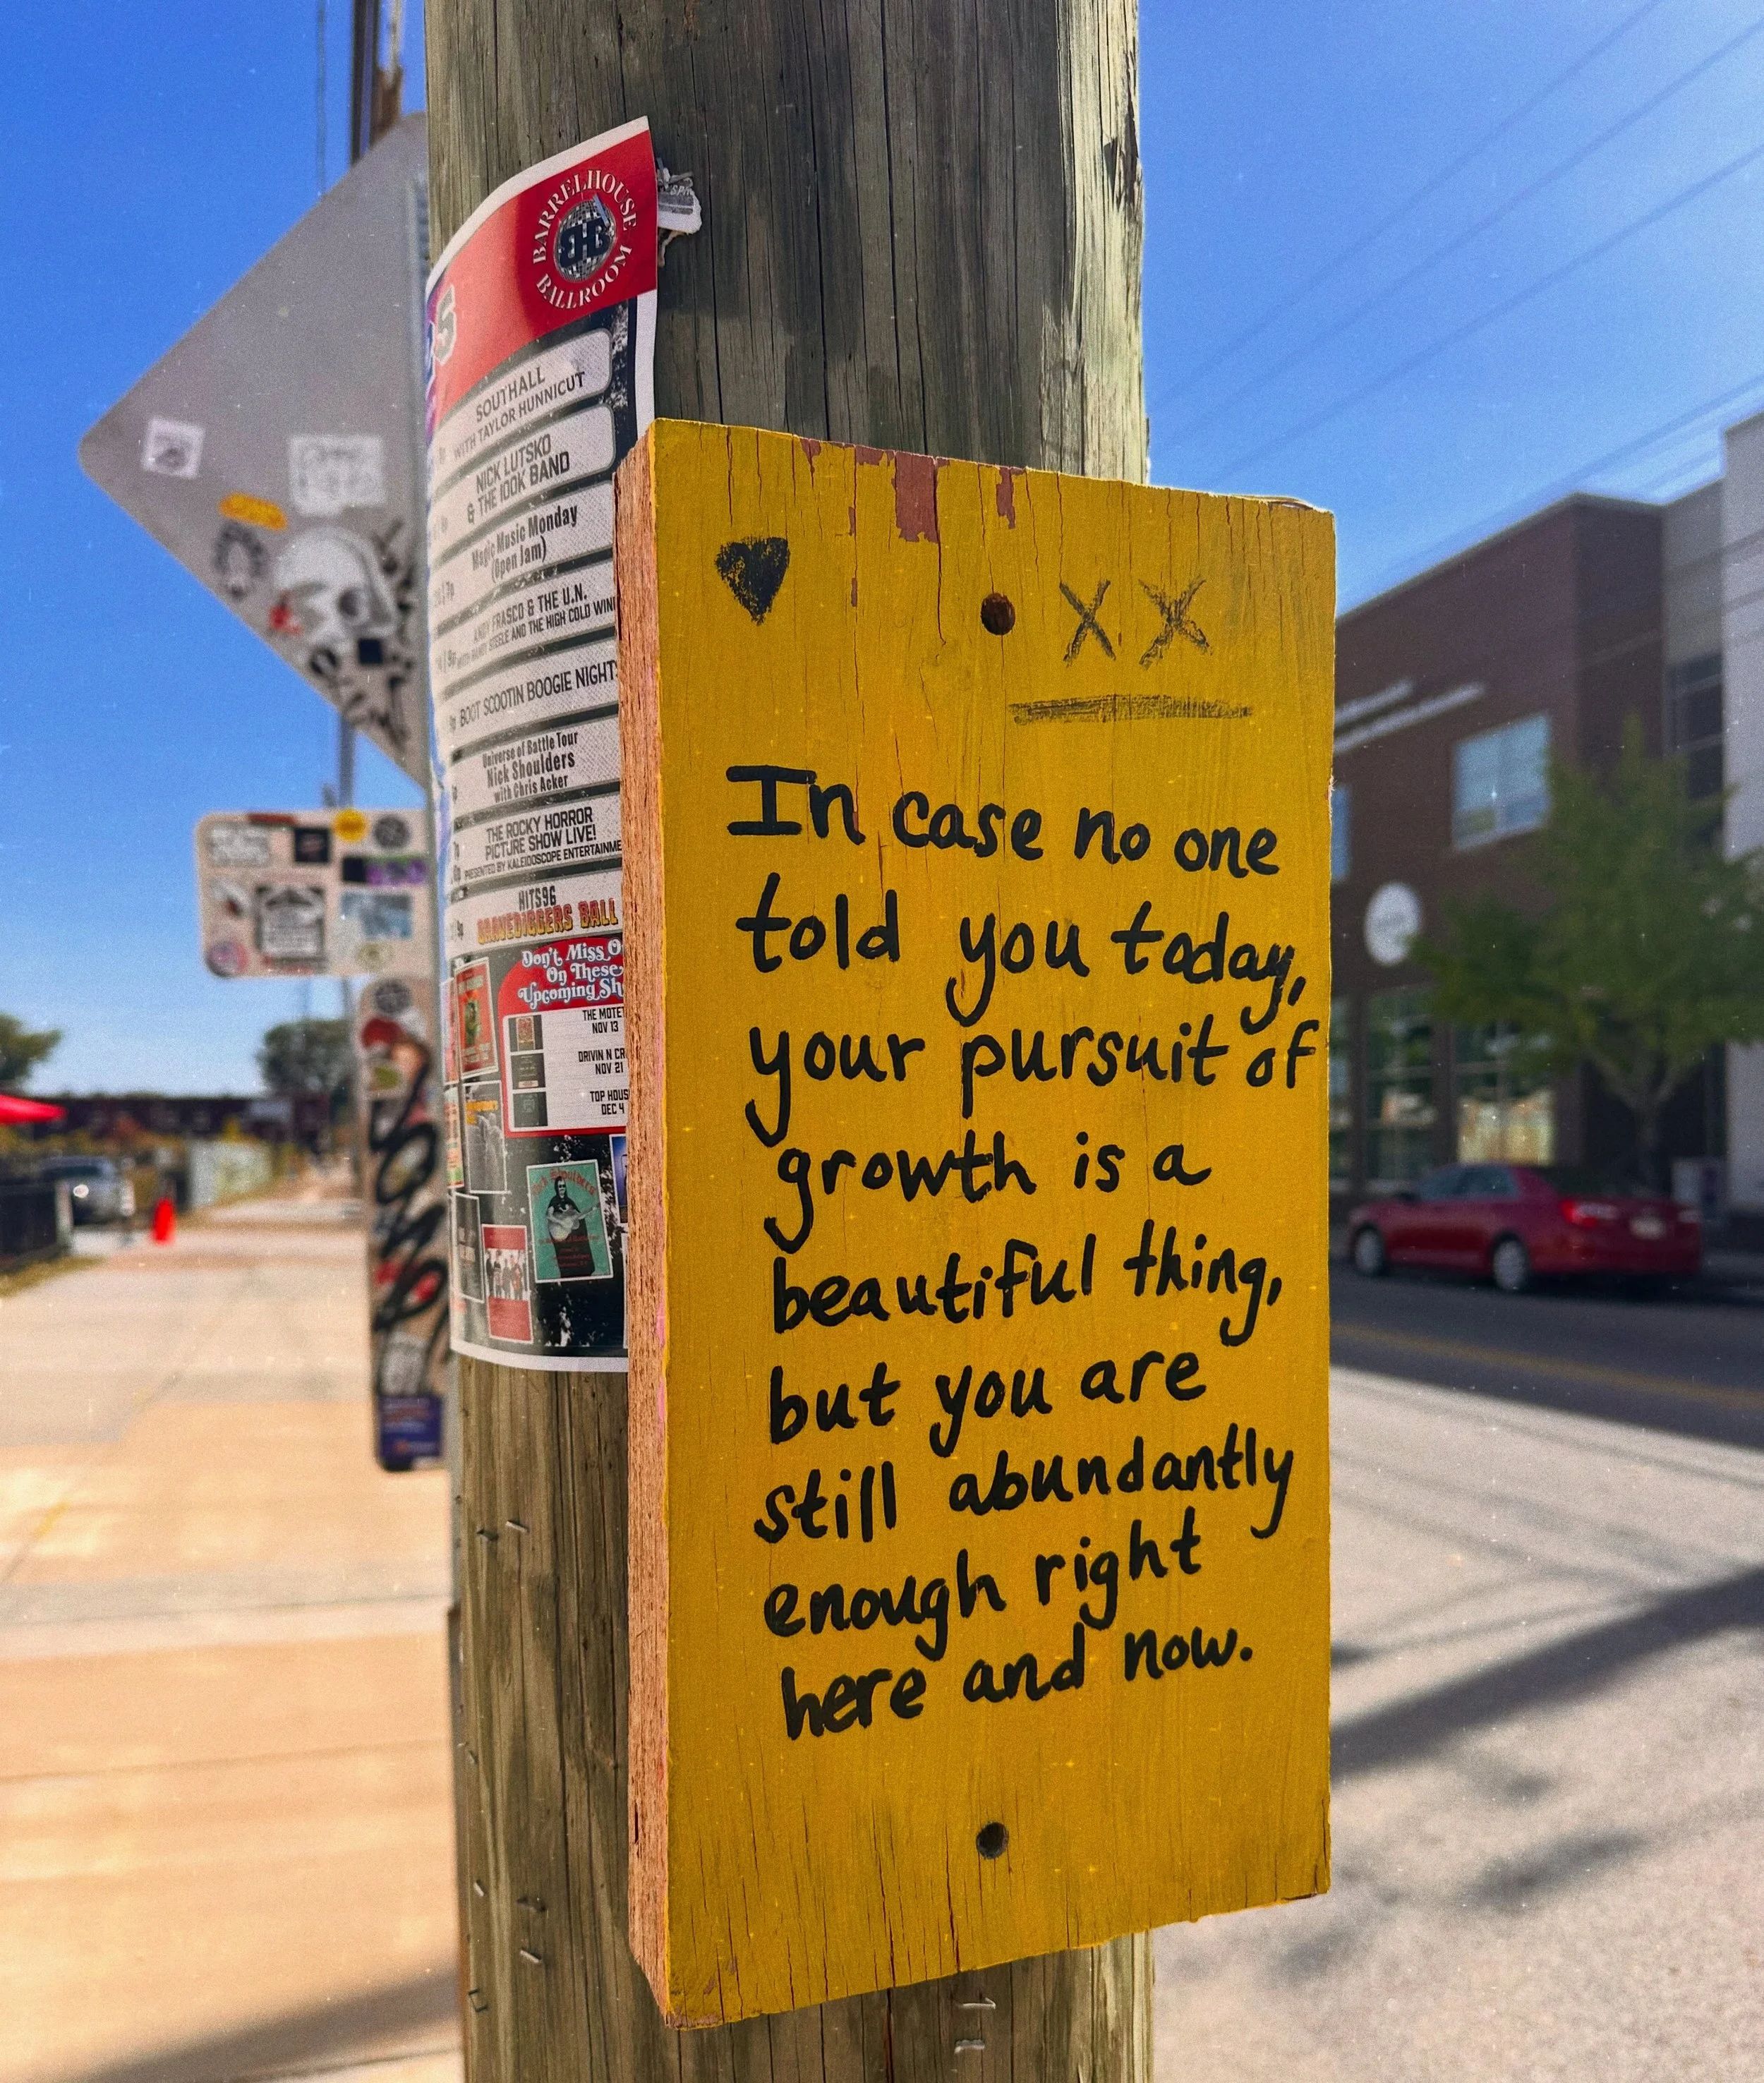 BARRELHOUSE
BHB
BALLROOM
SOUTHALL
WITH TAYLOR HUNNICUT
NICK LUTSKO
& THE 100K BAND
Magic Music Monday
(Open Jam)
ANDY FRASCO & THE U.N.
STEELE AND THE HIGH COLD WIN
BOOT SCOOTIN BOOGIE NIGHT
Universe of Battle Tour
Nick Shoulders
with Chris Acker
THE ROCKY HORROR
PICTURE SHOW LIVE!
PRESENTED BY KALEIDOSCOPE ENTERTAINME
HITS96
GRAVEDIGGERS BALL
Don't Miss O
On These
Upcoming Sh
THE MOTET
NOV 13
DRIVIN N CR
NOV 21
TOP HOUS
DEC 4
X X
In case no one
told you today,
your pursuit of
growth is a
beautiful thing,
but you are
still abundantly
enough right
here and now.